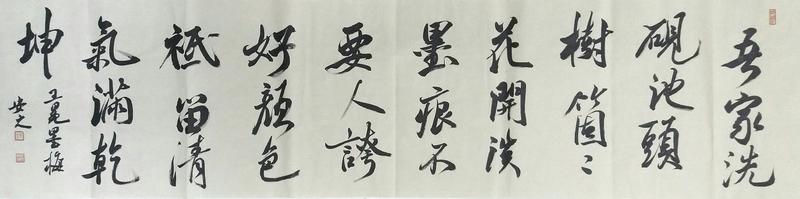 吾家洗
硯池頭
樹箇〻
花開淡
墨痕不
要人誇
好顏色
祗留清
氣滿乾
坤
王冕墨梅